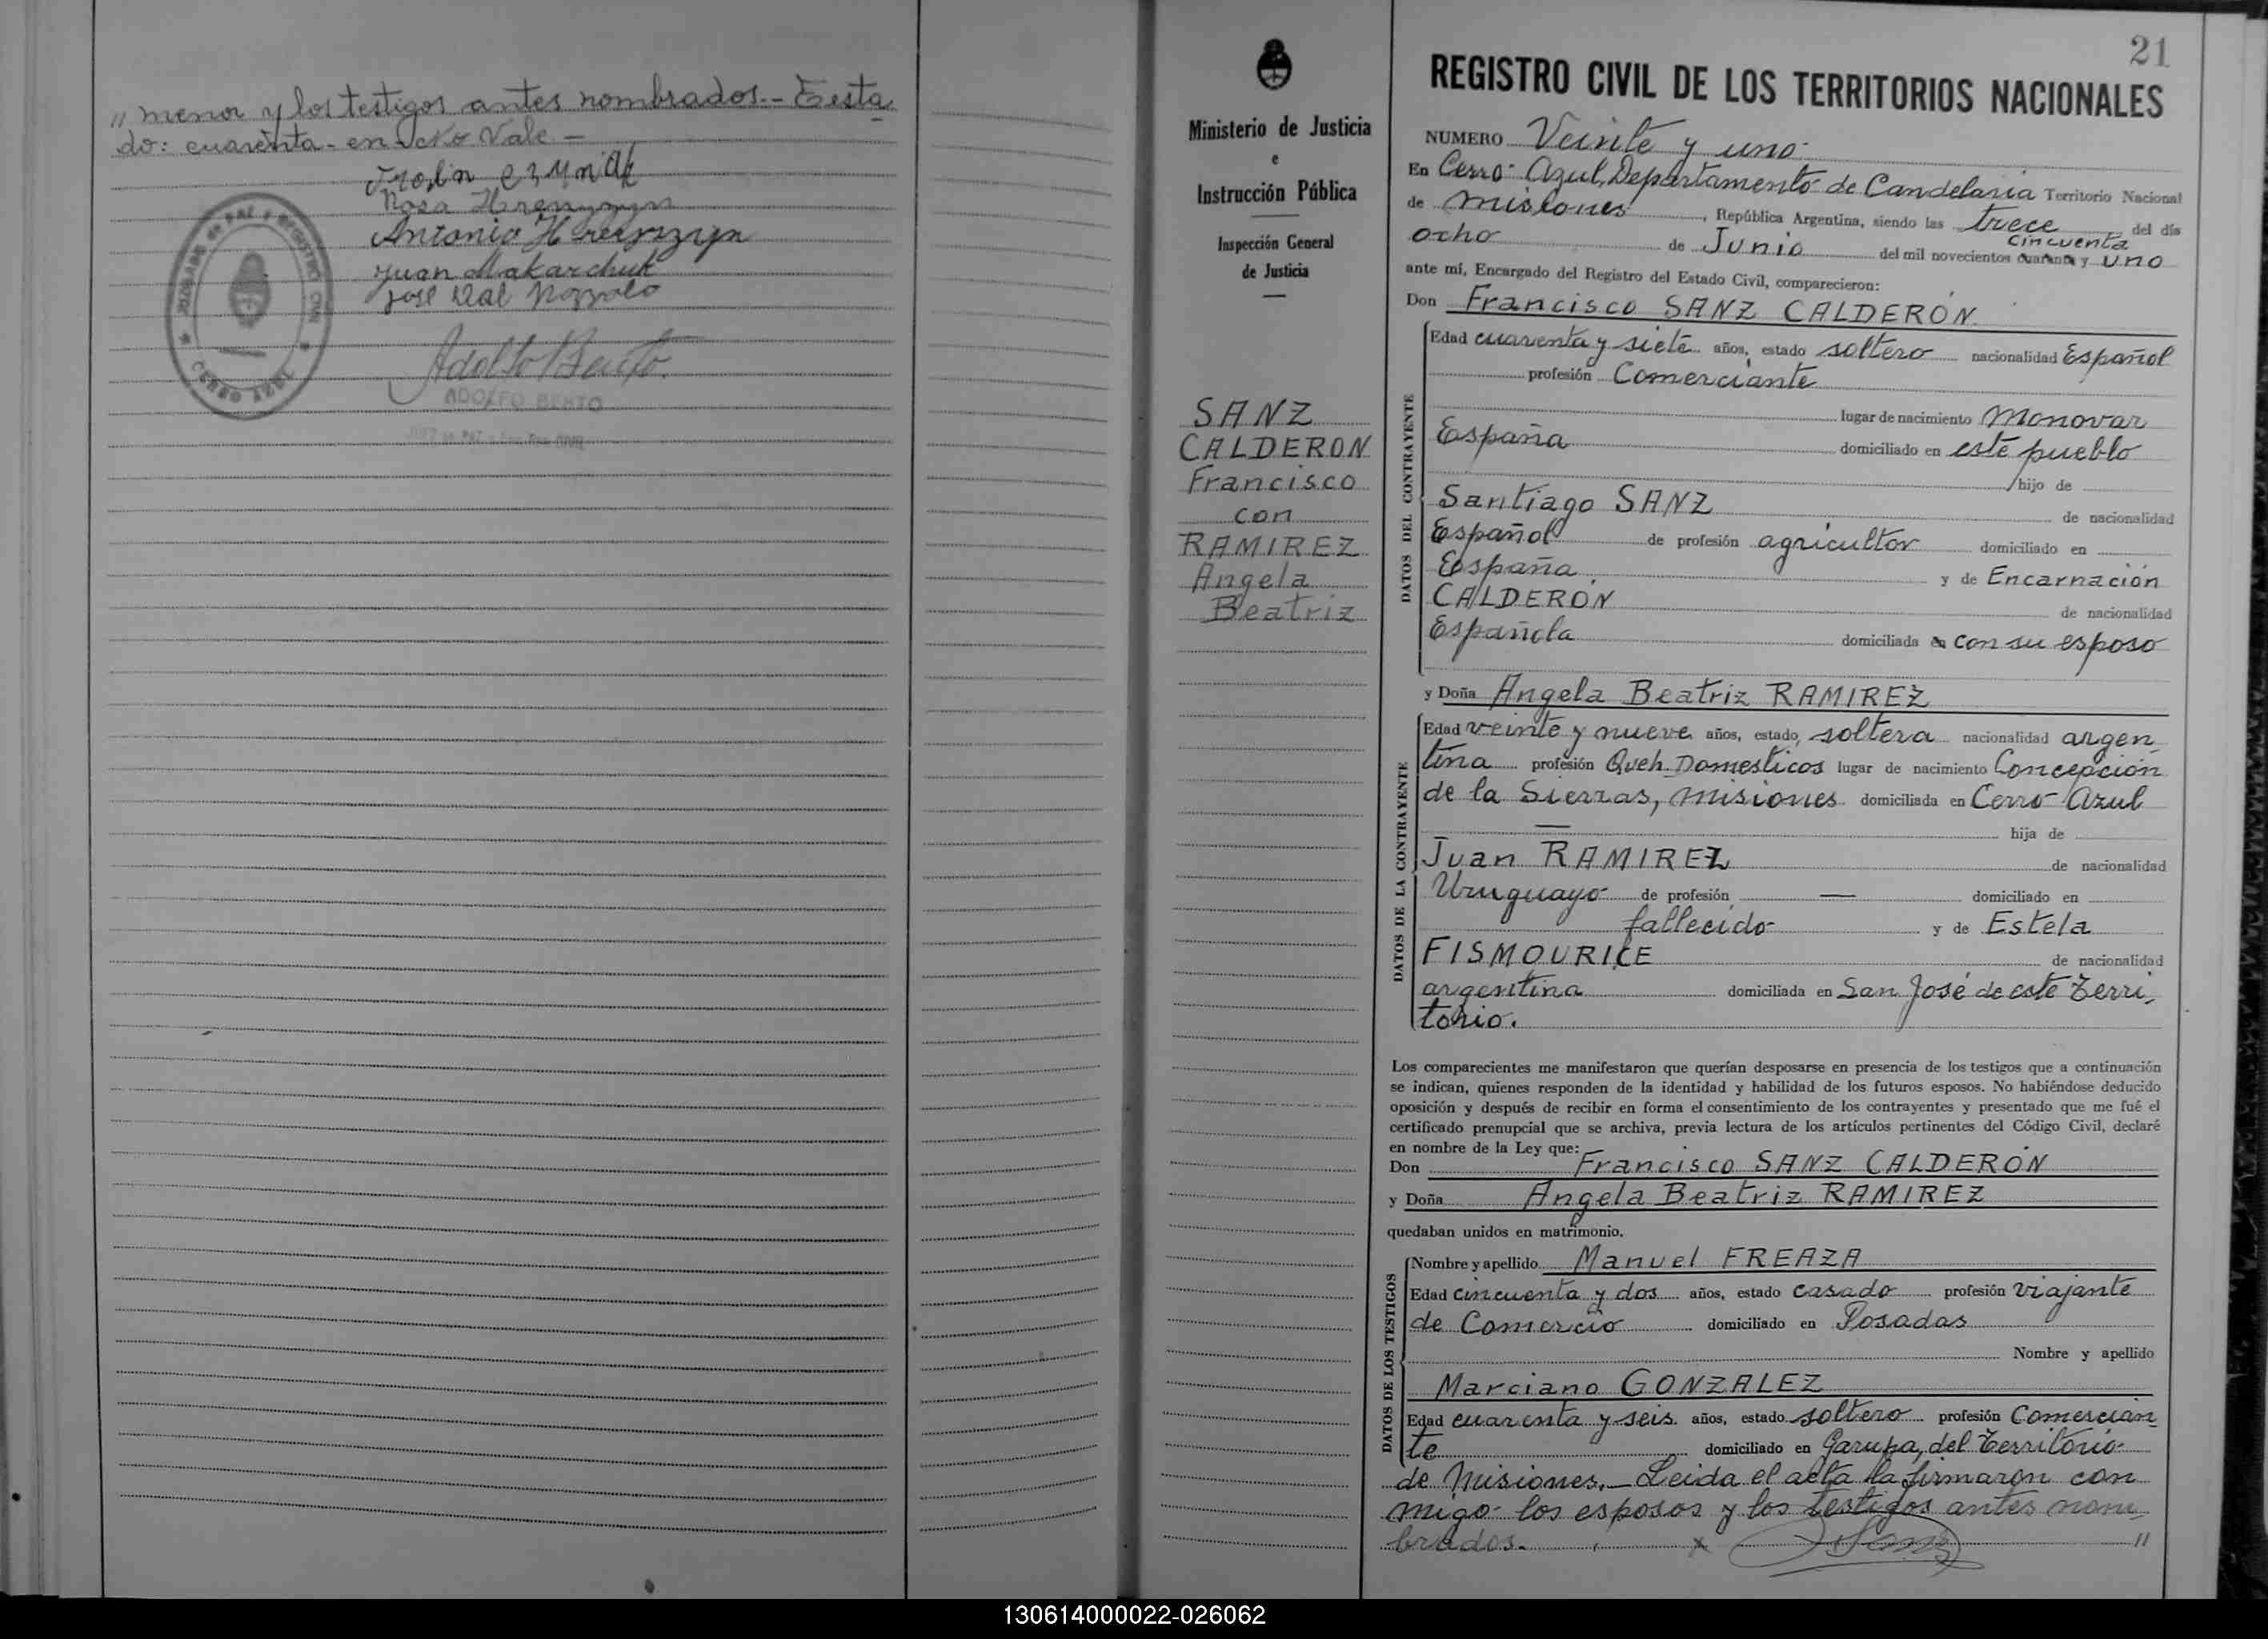 " menor y los testigos antes nombrados.- Testa
do: cuarenta - en Vale -
Rosa Hrenyzyn
Antonio Hrenyzyn
Juan Makarchuk
José Dal Pozzolo
JUZGADO DE PAZ Y REGISTRO CIVIL
CERRO AZUL
Adolfo Bento.
ADOLFO BENTO
21
Ministerio de Justicia
e
Instrucción Pública
Inspección General
de Justicia
SANZ
CALDERON
Francisco
con
RAMIREZ
Angela
Beatriz
REGISTRO CIVIL DE LOS TERRITORIOS NACIONALES
NUMERO Veinte y uno.
En Cerro Azul, Departamento de Candelaria Territorio Nacional
de Misiones, República Argentina, siendo las trece del día
cincuenta
ocho de Junio del mil novecientos cuarenta y uno
ante mí, Encargado del Registro del Estado Civil, comparecieron:
Don Francisco SANZ CALDERÓN.
DATOS DEL CONTRAYENTE
Edad cuarenta y siete años, estado soltero nacionalidad Español
profesión Comerciante
lugar de nacimiento Monovar
España domiciliado en este pueblo
hijo de
Santiago SANZ de nacionalidad
Español de profesión agricultor domiciliado en
España y de Encarnación
CALDERON de nacionalidad
Española domiciliada en con su esposo
y Doña Angela Beatriz RAMIREZ
DATOS DE LA CONTRAYENTE
Edad veinte y nueve años, estado, soltera nacionalidad argen
tina profesión Queh. Domesticos lugar de nacimiento Concepción
de la Sierras, Misiones domiciliada en Cerro Azul
— hija de
Juan RAMIREZ de nacionalidad
Uruguayo de profesión — domiciliado en
fallecido y de Estela
FISMOURICE de nacionalidad
argentina domiciliada en San José de este Terri
torio.
Los comparecientes me manifestaron que querían desposarse en presencia de los testigos que a continuación
se indican, quienes responden de la identidad y habilidad de los futuros esposos. No habiéndose deducido
oposición y después de recibir en forma el consentimiento de los contrayentes y presentado que me fué el
certificado prenupcial que se archiva, previa lectura de los artículos pertinentes del Código Civil, declaré
en nombre de la Ley que:
Don Francisco SANZ CALDERÓN
y Doña Angela Beatriz RAMIREZ
quedaban unidos en matrimonio.
DATOS DE LOS TESTIGOS
Nombre y apellido Manuel FREAZA
Edad cincuenta y dos años, estado casado profesión viajante
de Comercio domiciliado en Posadas
Nombre y apellido
Marciano GONZALEZ
Edad cuarenta y seis años, estado soltero profesión Comercian
te domiciliado en Garupa, del Territorio
de Misiones.- Leida el acta la firmaron con
migo los esposos y los testigos antes nom
brados. x "
130614000022-026062